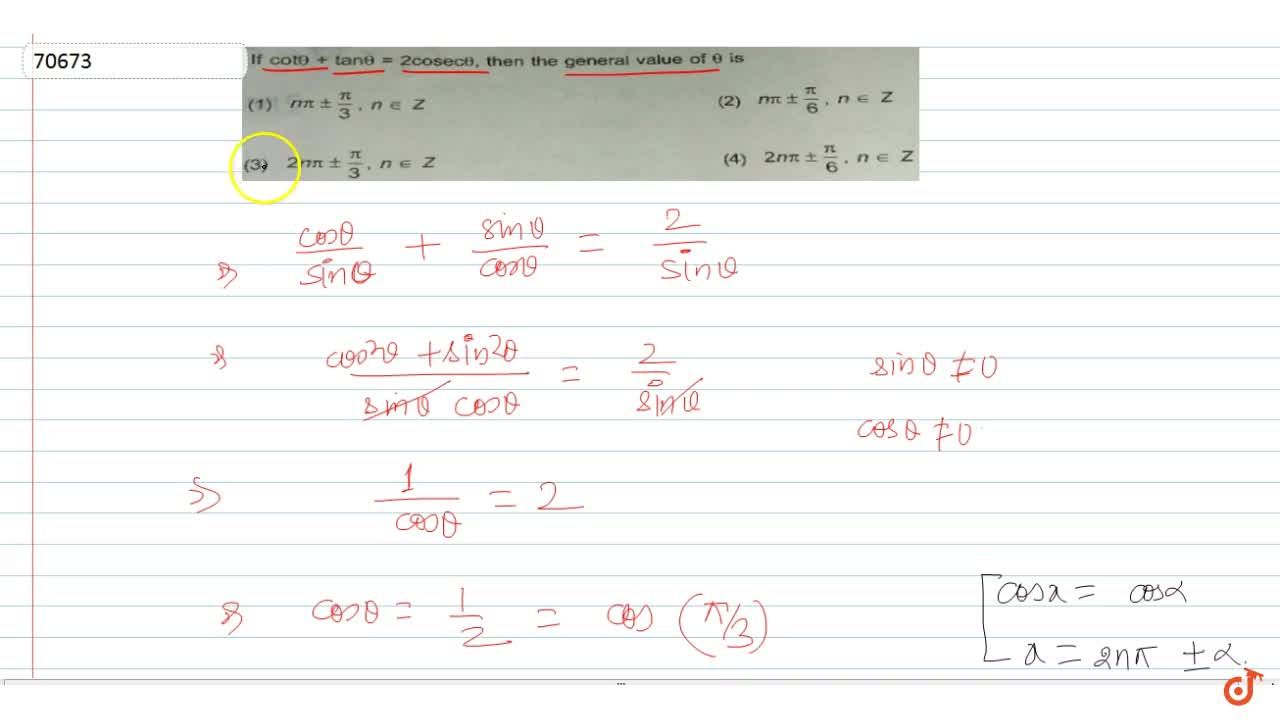 70673
If cotθ + tanθ = 2cosecθ, then the general value of θ is
(1) nπ ± π/3 , n ∈ Z
(2) nπ ± π/6 , n ∈ Z
(3) 2nπ ± π/3 , n ∈ Z
(4) 2nπ ± π/6 , n ∈ Z
⇒ cosθ/sinθ + sinθ/cosθ = 2/sinθ
⇒ cos²θ + sin²θ / sinθ cosθ = 2/sinθ
sinθ ≠ 0
cosθ ≠ 0
⇒ 1/cosθ = 2
⇒ cosθ = 1/2 = cos (π/3)
cosx = cosα
x = 2nπ ± α.